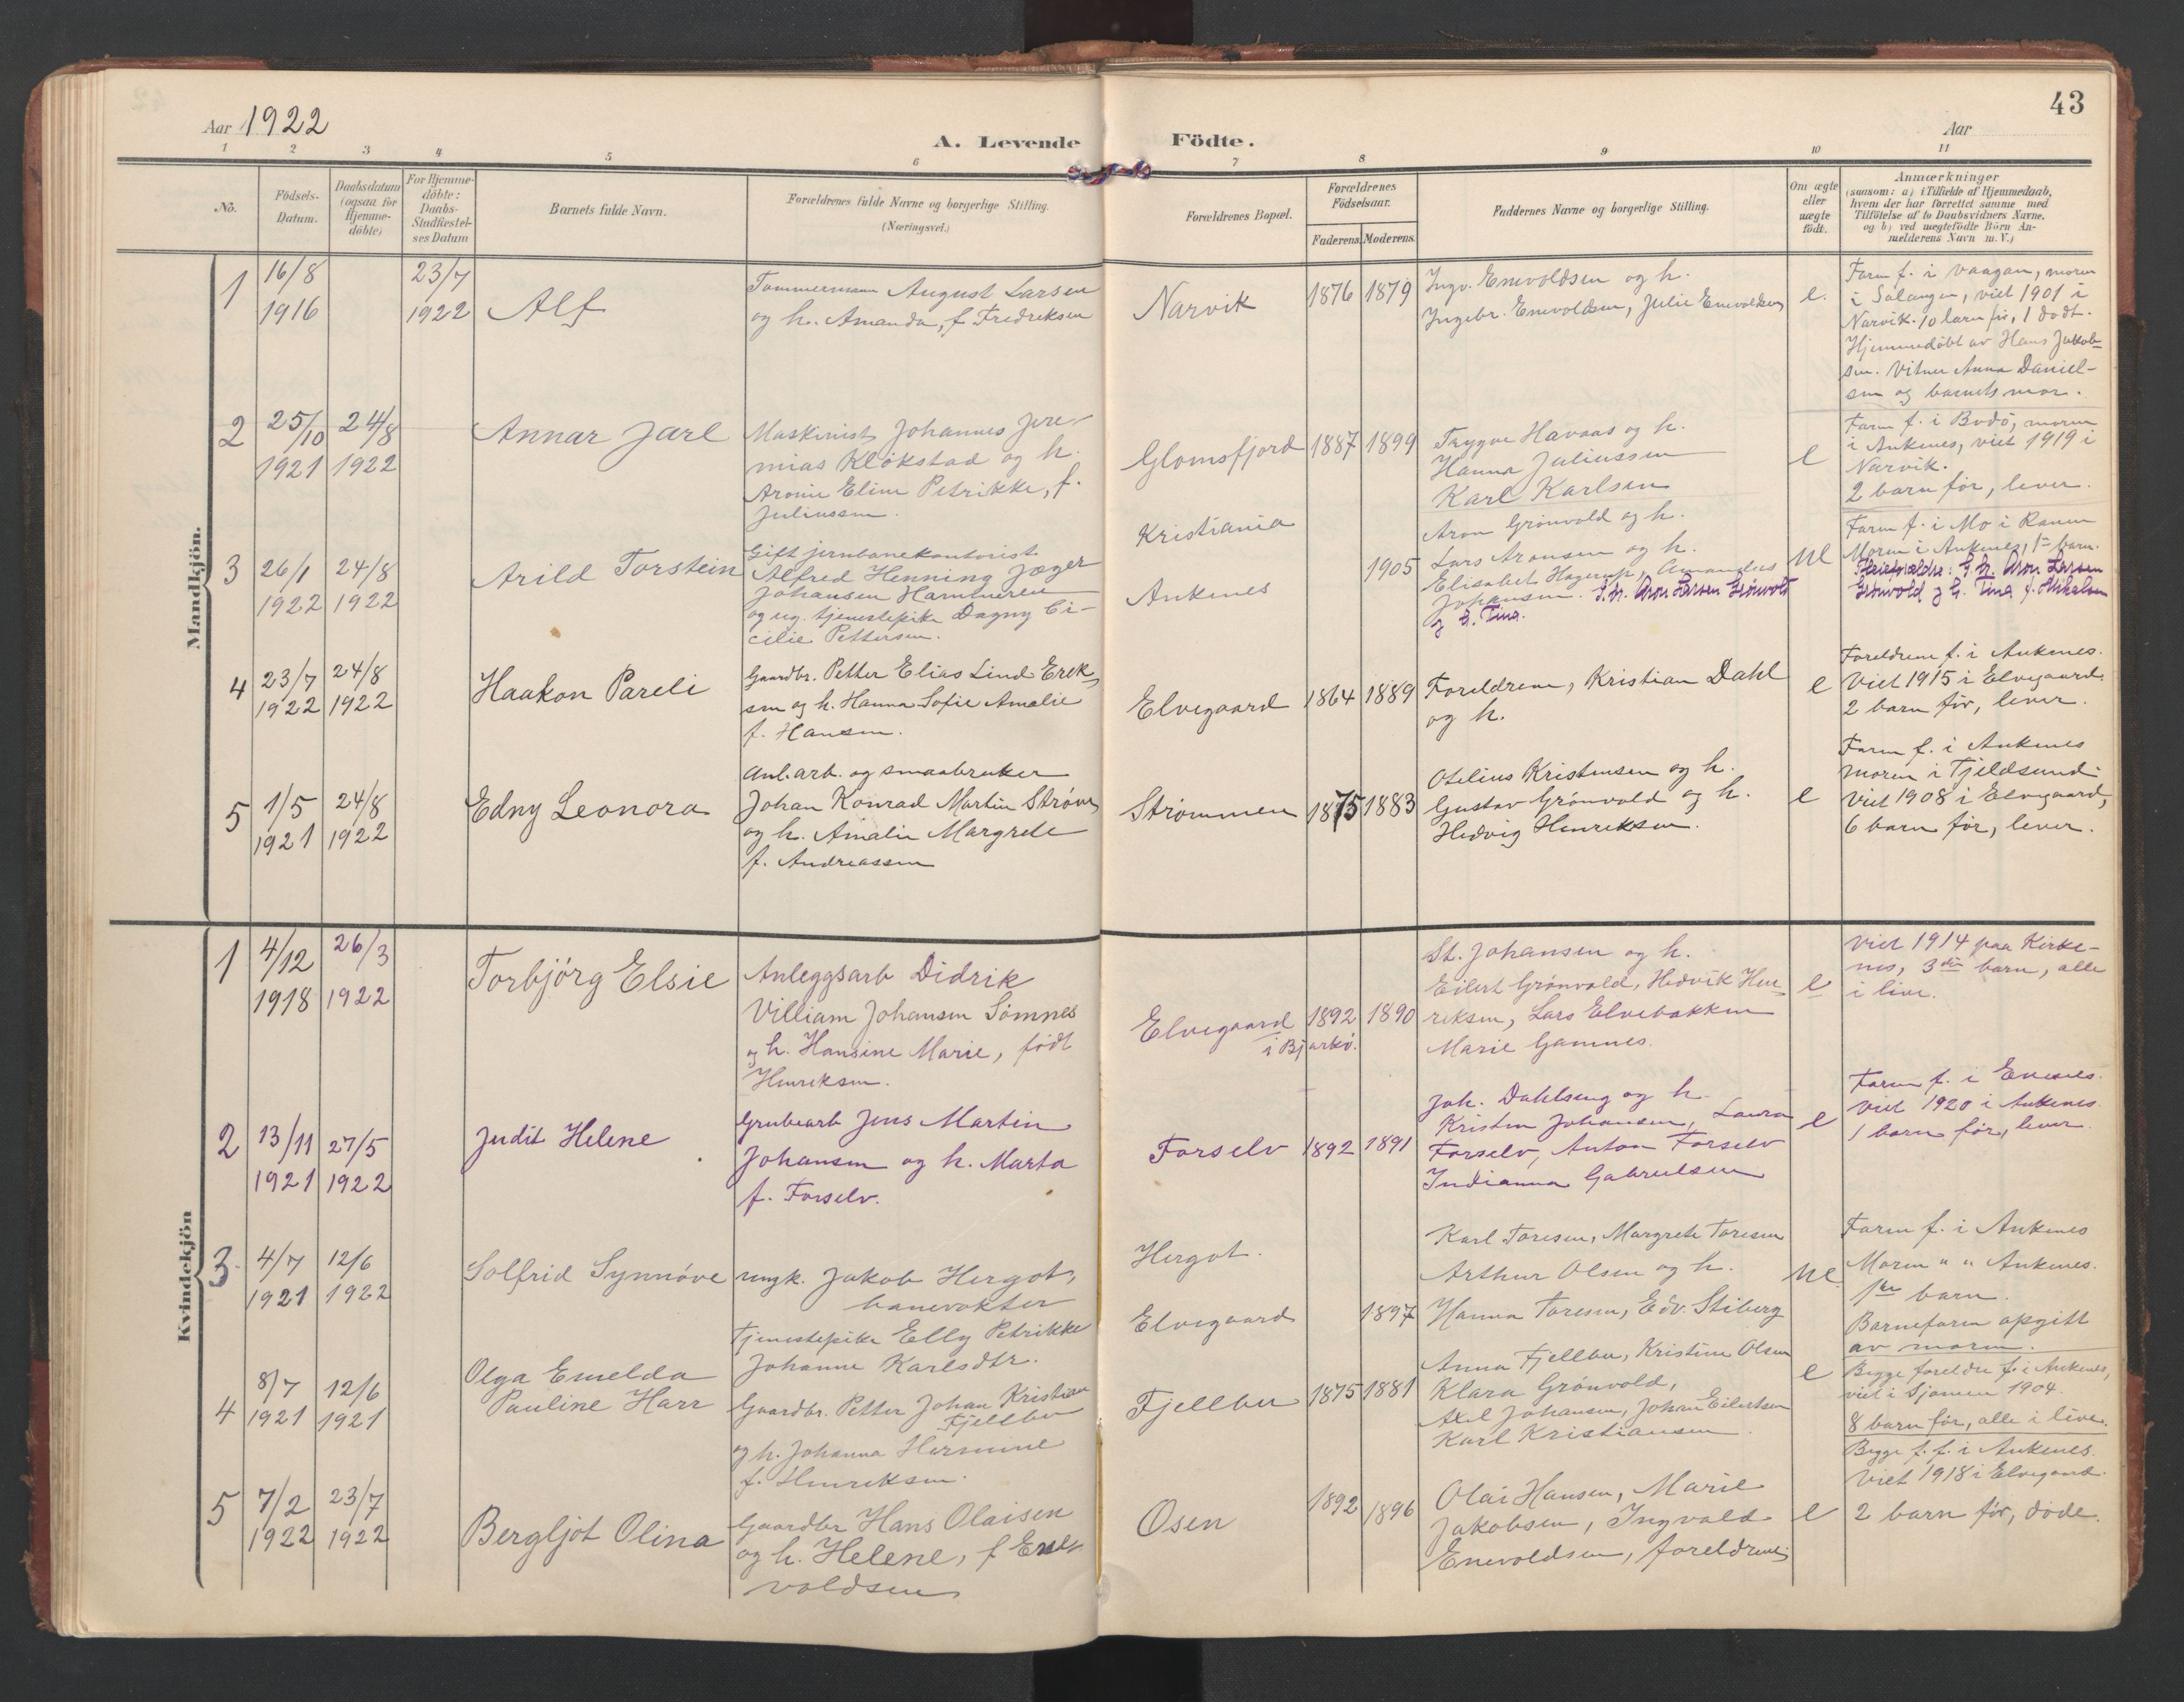 43
Aar 1922
Aar
A. Levende Födte.
1 2 3 4 5 6 7 8 9 10 11
No.
Födsels-
Datum.
Daabsdatum
(ogsaa for
Hjemme-
döbte)
For Hjemme-
döbte:
Daabs-
Stadfæstel-
ses Datum
Barnets fulde Navn.
Forældrenes fulde Navne og borgerlige Stilling.
(Næringsvei.)
Forældrenes Bopæl.
Forældrenes
Födselsaar.
Faderens. Moderens.
Faddernes Navne og borgerlige Stilling.
Om ægte
eller
uægte
födt.
Anmærkninger
(saasom: a) i Tilfælde af Hjemmedaab,
hvem der har forrettet samme med
Tilföielse af to Daabsvidners Navne,
og b) ved uægtefödte Börn An-
melderens Navn m. V.)
Mandkjön.
1
16/8
1916
23/7
1922
Alf
Tømmermann August Larsen
og h. Amanda, f. Fredriksen
Narvik
1876 1879
Ingv. Enevoldsen og h.
Ingebr. Enevoldsen, Julie Enevoldsen
e.
Faren f. i Vaagan, moren
i Salangen, viet 1901 i
Narvik. 10 barn før, 1 dødt.
Hjemmedøbt av Hans Jakob-
sen. Vitner Anna Daniel-
sen og barnets mor.
2
25/10
1921
24/8
1922
Annar Jarl
Maskinist Johannes Jere-
mias Kløkstad og h.
Aronie Eline Petrikke, f.
Juliussen.
Glomsfjord
1887 1899
Trygve Havaas og h.
Hanna Juliussen
Karl Karlsen
e
Faren f. i Bodø, moren
i Ankenes, viet 1919 i
Narvik.
2 barn før, lever.
3
26/1
1922
24/8
1922
Arild Torstein
Gift jernbanekontorist
Alfred Henning Jæger
Johansen Hamneren
og ug. tjenestepike Dagny Ce-
cilie Pettersen.
Kristiania
Ankenes
1905
Aron Grønvold og h.
Lars Aronsen og h.
Elisabet Hagerup, Amandus
Johansen. G.br. Aron Larsen Grønvold
og h. Tina.
ue
Faren f. i Mo i Ranen
Moren i Ankenes, 1ste barn.
Pleieforældre: G.br. Aron Larsen
Grønvold og h. Tina f. Mikalsen
4
23/7
1922
24/8
1922
Haakon Pareli
Gaardbr. Petter Elias Lind Erik-
sen og h. Hanna Sofie Amalie
f. Hansen.
Elvegaard
1864 1889
Foreldrene, Kristian Dahl
og h.
e
Foreldrene f. i Ankenes.
Viet 1915 i Elvegaard.
2 barn før, lever.
5
1/5
1921
24/8
1922
Edny Leonora
Anl.arb. og smaabruker
Johan Konrad Martin Strømm
og h. Amalie Margrete
f. Andreassen
Strømmen
1875 1883
Otelius Kristensen og h.
Gustav Grønvold og h.
Hedvig Henriksen.
e
Faren f. i Ankenes
moren i Tjeldsund.
Viet 1908 i Elvegaard,
6 barn før, lever.
Kvindekjön
1
4/12
1918
26/3
1922
Torbjørg Elsie
Anleggsarb Didrik
Villiam Johansen Sømnes
og h. Hansine Marie, født
Henriksen.
Elvegaard
i Bjarkø.
1892 1890
St. Johansen og h.
Eilert Grønvold, Hedvik Hen-
riksen, Lars Elvebakken
Marie Gamnes.
e
Viet 1914 paa Kirke-
nes, 3die barn, alle
i live.
2
13/11
1921
27/5
1922
Judit Helene
Grubearb Jens Martin
Johansen og h. Marta
f. Forselv.
Forselv
1892 1891
Joh. Dahlseng og h.
Kristen Johansen, Laura
Forselv, Anton Forselv
Indianna Gabrielsen
e
Faren f. i Evenes.
Viet 1920 i Ankenes.
1 barn før, lever.
3
4/7
1921
12/6
1922
Solfrid Synnøve
ungk. Jakob Hergot,
banevokter
Tjenestepike Elly Petrikke
Johanne Karlsdtr.
Hergot.
Elvegaard
1897
Karl Toresen, Margrete Toresen
Arthur Olsen og h.
Hanna Toresen, Edv. Stiberg
ue.
Faren f. i Ankenes
Moren " " Ankenes.
1ste barn.
Barnefaren opgitt
av moren.
4
8/7
1921
12/6
1921
Olga Emelda
Pauline Harr
Gaardbr. Petter Johan Kristian
Fjellbu
og h. Johanna Hermine
f. Henriksen.
Fjellbu
1875 1881
Anna Fjellbu, Kristine Olsen
Klara Grønvold,
Axel Johansen, Johan Eilertsen
Karl Kristiansen.
e
Begge foreldre f. i Ankenes,
viet i Sjomen 1904.
8 barn før, alle i live.
5
7/2
1922
23/7
1922
Bergljot Olina
Gaardbr Hans Olaisen
og h. Helene, f Ene-
voldsen
Osen
1892 1896
Olai Hansen, Marie
Jakobsen, Ingvald
Enevoldsen, foreldrene
e
Begge f. f. i Ankenes.
Viet 1918 i Elvegaard.
2 barn før, døde.